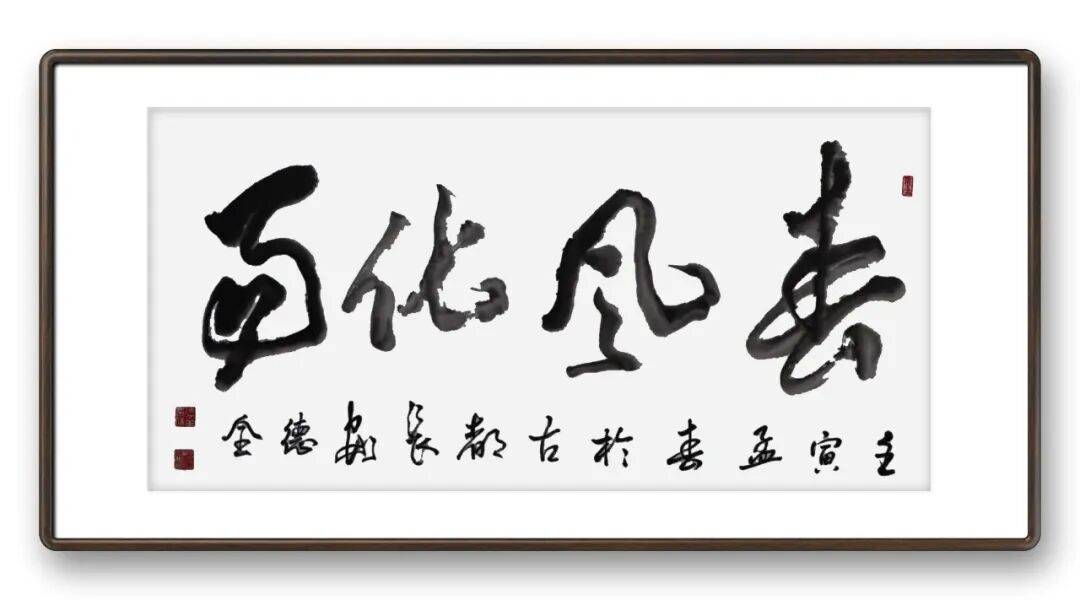 春风化雨
壬寅孟春於古都长安德全